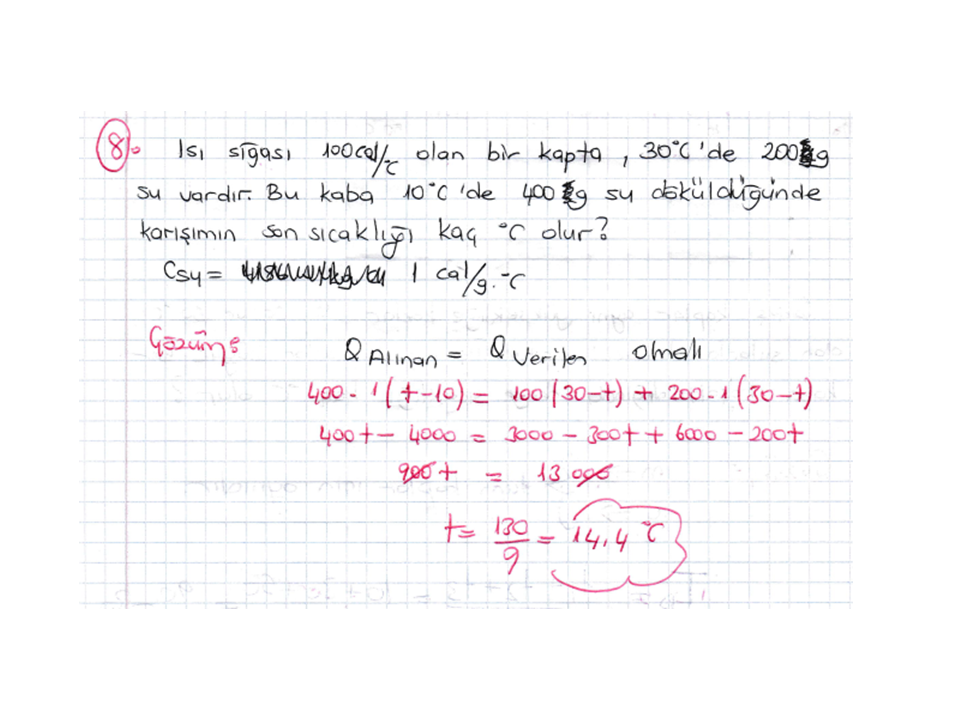 8. Isı sığası 100cal/°C olan bir kapta, 30°C'de 200 g
su vardır. Bu kaba 10°C'de 400 g su döküldüğünde
karışımın son sıcaklığı kaç °C olur?
Csu = 1 cal/g.°C
Çözüm:
Q Alınan = Q Verilen olmalı
400 . 1 (t-10) = 100 (30-t) + 200 . 1 (30-t)
400t - 4000 = 3000 - 300t + 6000 - 200t
900t = 13000
t = 130/9 = 14,4 °C